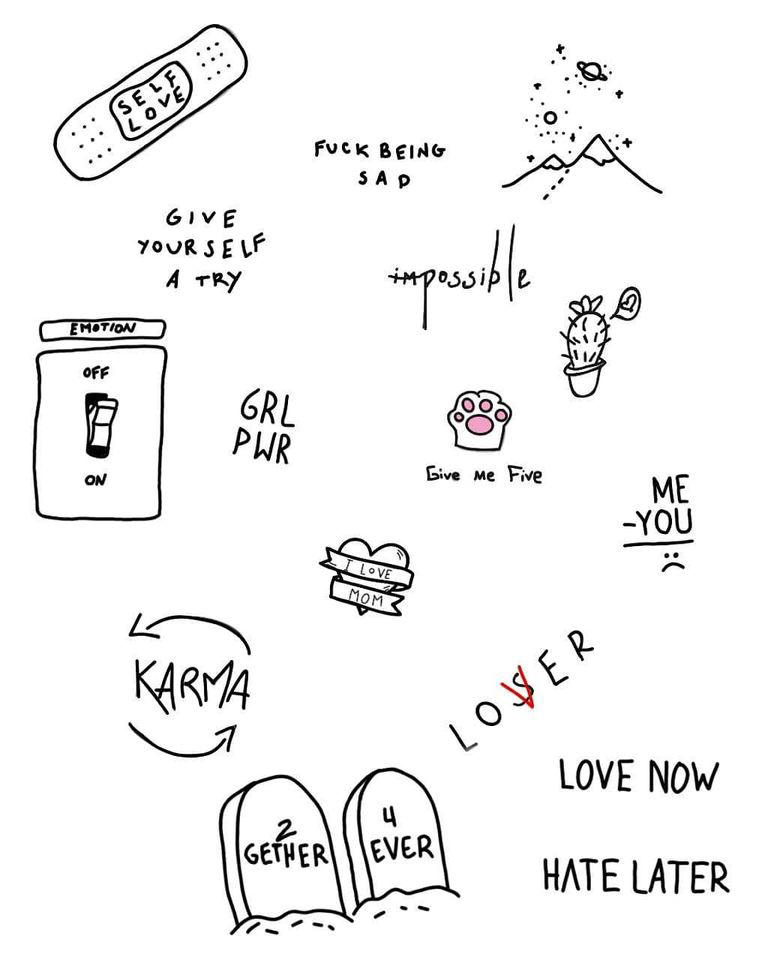 SELF
LOVE
FUCK BEING
SAD
GIVE
YOURSELF
A TRY
impossible
EMOTION
OFF
ON
GRL
PWR
Give Me Five
ME
-YOU
I LOVE
MOM
KARMA
LOVER
LOVE NOW
HATE LATER
2
GETHER
4
EVER